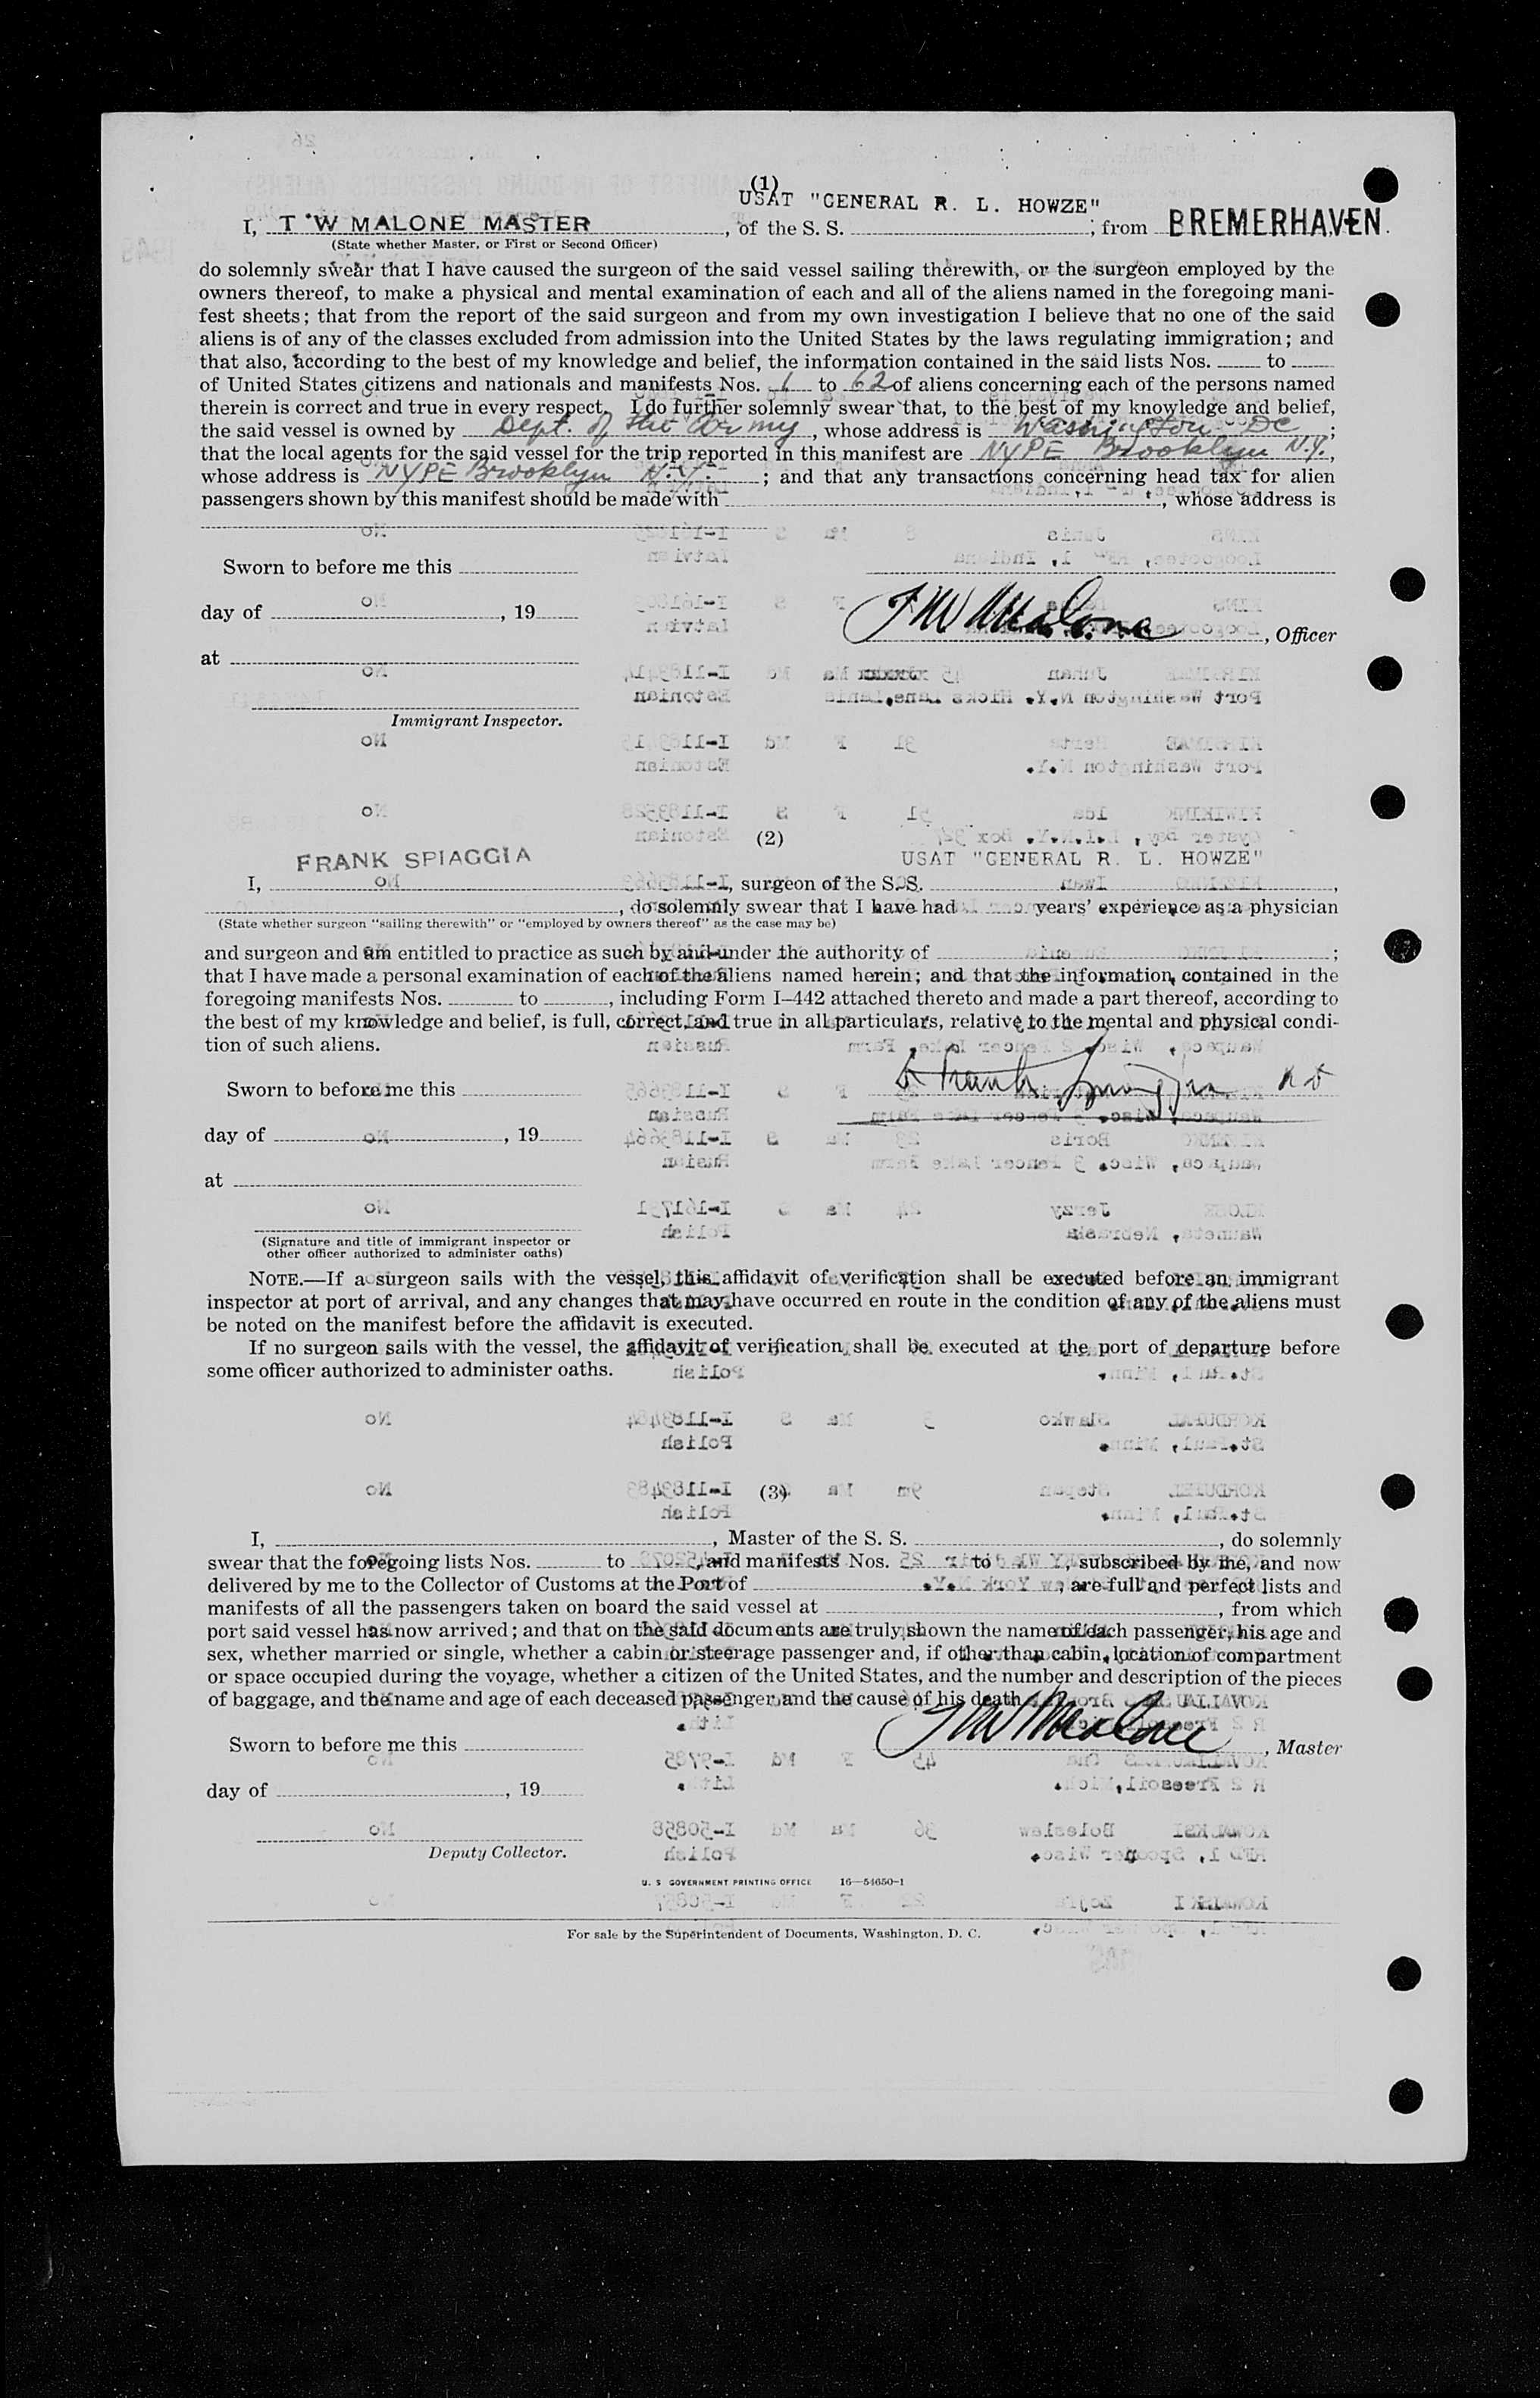 (1)
USAT "GENERAL R. L. HOWZE"
I, T W MALONE MASTER, of the S. S. ; from BREMERHAVEN.
(State whether Master, or First or Second Officer)
do solemnly swear that I have caused the surgeon of the said vessel sailing therewith, or the surgeon employed by the
owners thereof, to make a physical and mental examination of each and all of the aliens named in the foregoing mani-
fest sheets; that from the report of the said surgeon and from my own investigation I believe that no one of the said
aliens is of any of the classes excluded from admission into the United States by the laws regulating immigration; and
that also, according to the best of my knowledge and belief, the information contained in the said lists Nos. to
of United States citizens and nationals and manifests Nos. 1 to 62 of aliens concerning each of the persons named
therein is correct and true in every respect. I do further solemnly swear that, to the best of my knowledge and belief,
the said vessel is owned by Dept. of the Army, whose address is Washington DC;
that the local agents for the said vessel for the trip reported in this manifest are NYPE Brooklyn N.Y.,
whose address is NYPE Brooklyn N.Y.; and that any transactions concerning head tax for alien
passengers shown by this manifest should be made with , whose address is
Sworn to before me this
day of , 19
T W Malone, Officer
at
Immigrant Inspector.
(2)
FRANK SPIAGGIA USAT "GENERAL R. L. HOWZE"
I, , surgeon of the S. S. ,
, do solemnly swear that I have had years' experience as a physician
(State whether surgeon "sailing therewith" or "employed by owners thereof" as the case may be)
and surgeon and am entitled to practice as such by and under the authority of ;
that I have made a personal examination of each of the aliens named herein; and that the information contained in the
foregoing manifests Nos. to , including Form I–442 attached thereto and made a part thereof, according to
the best of my knowledge and belief, is full, correct, and true in all particulars, relative to the mental and physical condi-
tion of such aliens.
Frank Spiaggia
Sworn to before me this
day of , 19
at
(Signature and title of immigrant inspector or
other officer authorized to administer oaths)
NOTE.—If a surgeon sails with the vessel, this affidavit of verification shall be executed before an immigrant
inspector at port of arrival, and any changes that may have occurred en route in the condition of any of the aliens must
be noted on the manifest before the affidavit is executed.
If no surgeon sails with the vessel, the affidavit of verification shall be executed at the port of departure before
some officer authorized to administer oaths.
(3)
I, , Master of the S. S. , do solemnly
swear that the foregoing lists Nos. to , and manifests Nos. to , subscribed by me, and now
delivered by me to the Collector of Customs at the Port of , are full and perfect lists and
manifests of all the passengers taken on board the said vessel at , from which
port said vessel has now arrived; and that on the said documents are truly shown the name of each passenger, his age and
sex, whether married or single, whether a cabin or steerage passenger and, if other than cabin, location of compartment
or space occupied during the voyage, whether a citizen of the United States, and the number and description of the pieces
of baggage, and the name and age of each deceased passenger and the cause of his death.
T W Malone, Master
Sworn to before me this
day of , 19
Deputy Collector.
U. S. GOVERNMENT PRINTING OFFICE 16—54650-1
For sale by the Superintendent of Documents, Washington, D. C.